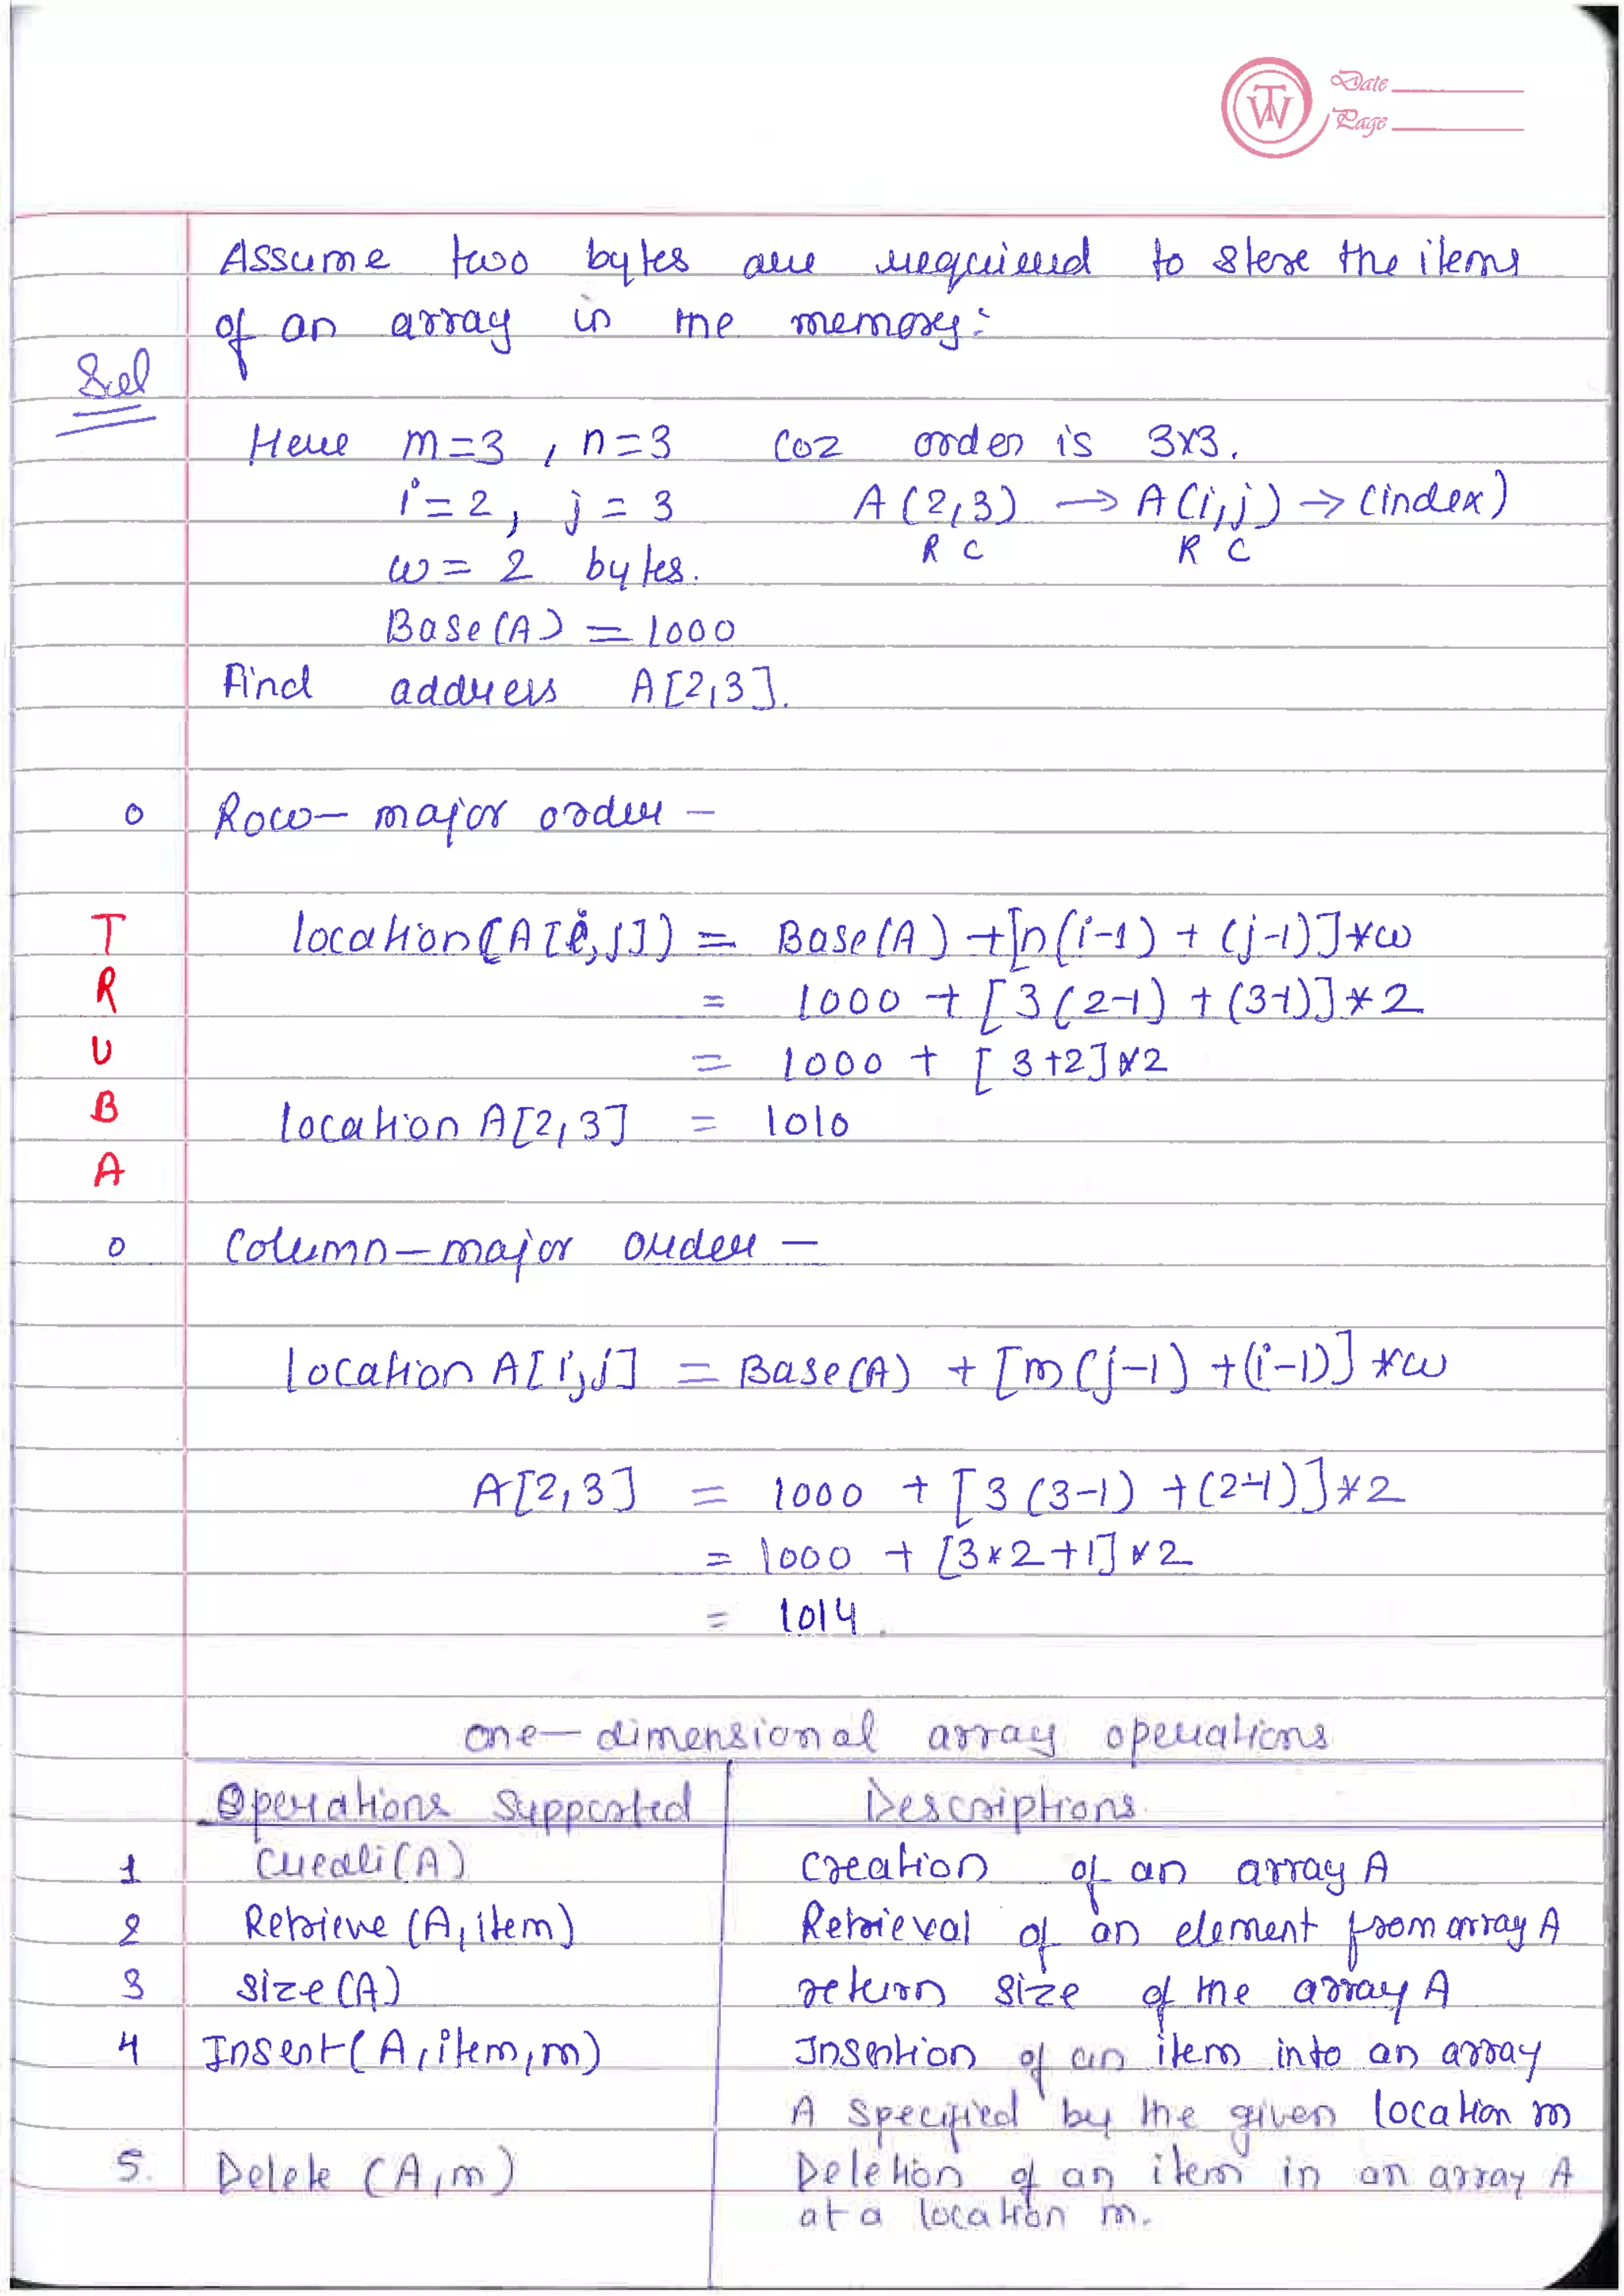 TW
Date
Page
Assume two bytes are required to store the items
of an array in the memory:
Sol
Here m=3, n=3 Coz order is 3x3.
i=2, j=3 A(2,3) → A(i,j) → (index)
R C R C
w=2 bytes.
Base(A) = 1000
Find address A[2,3].
o Row-major order -
location(A[i,j]) = Base(A) + [n(i-1) + (j-1)]*w
= 1000 + [3(2-1) + (3-1)]*2
= 1000 + [3+2]*2
location A[2,3] = 1010
T
R
U
B
A
o Column-major order -
location A[i,j] = Base(A) + [m(j-1) + (i-1)]*w
A[2,3] = 1000 + [3(3-1) + (2-1)]*2
= 1000 + [3*2+1]*2
= 1014.
one-dimensional array operations
Operations Supported Descriptions
1 Create(A) Creation of an array A
2 Retrieve (A, item) Retrieval of an element from array A
3 size(A) return size of the array A
4 Insert(A, item, m) Insertion of an item into an array
A specified by the given location m
5. Delete (A, m) Deletion of an item in an array A
at a location m.